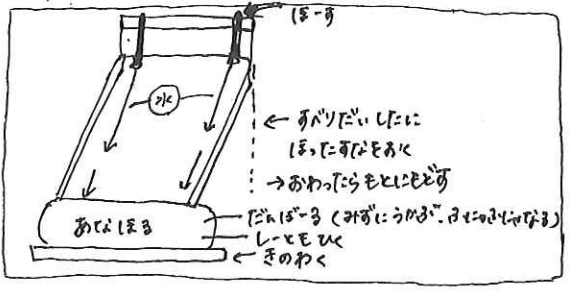 ほーす
水
←すべりだいしたに
ほったすなをおく
→おわったらもとにもどす
あなほる
だんぼーる(みずにうかぶ、ふにゃふにゃなる)
しーともひく
←きのわく